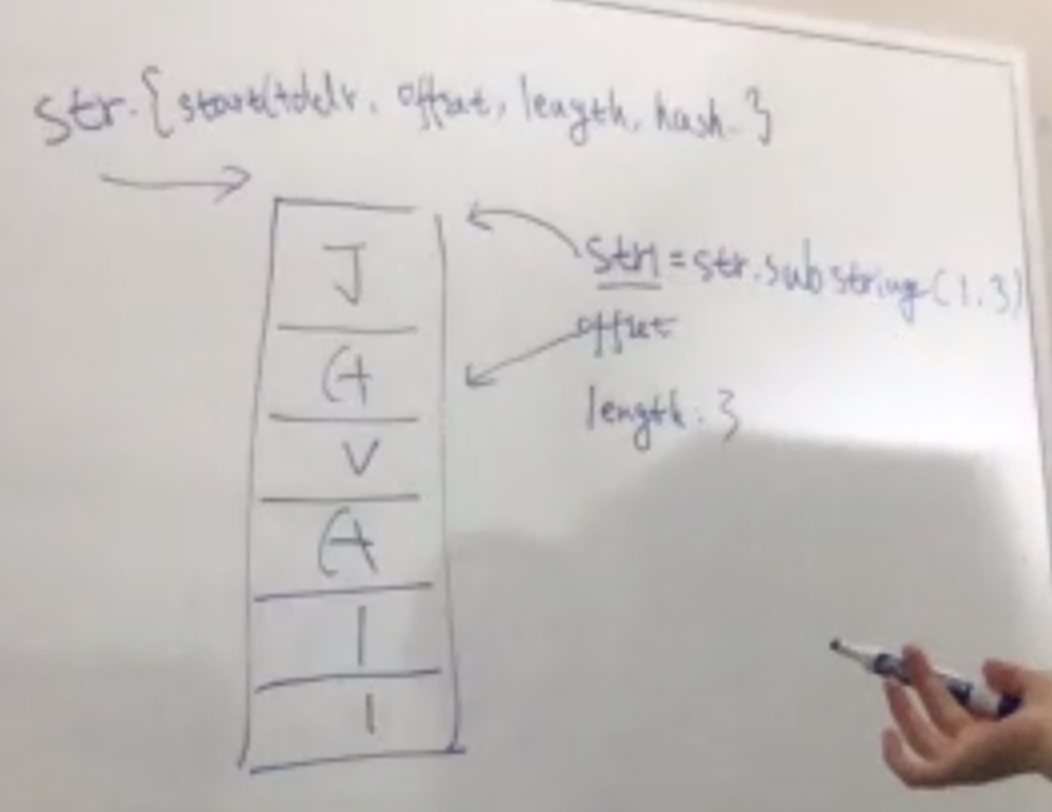 str.{startAddr, offset, length, hash.}
str1 = str.substring(1.3)
offset
length: 3
J
A
V
A
1
1